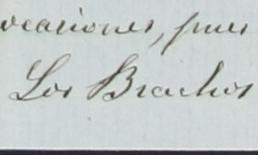 ocaciones, pues
Los Brachos